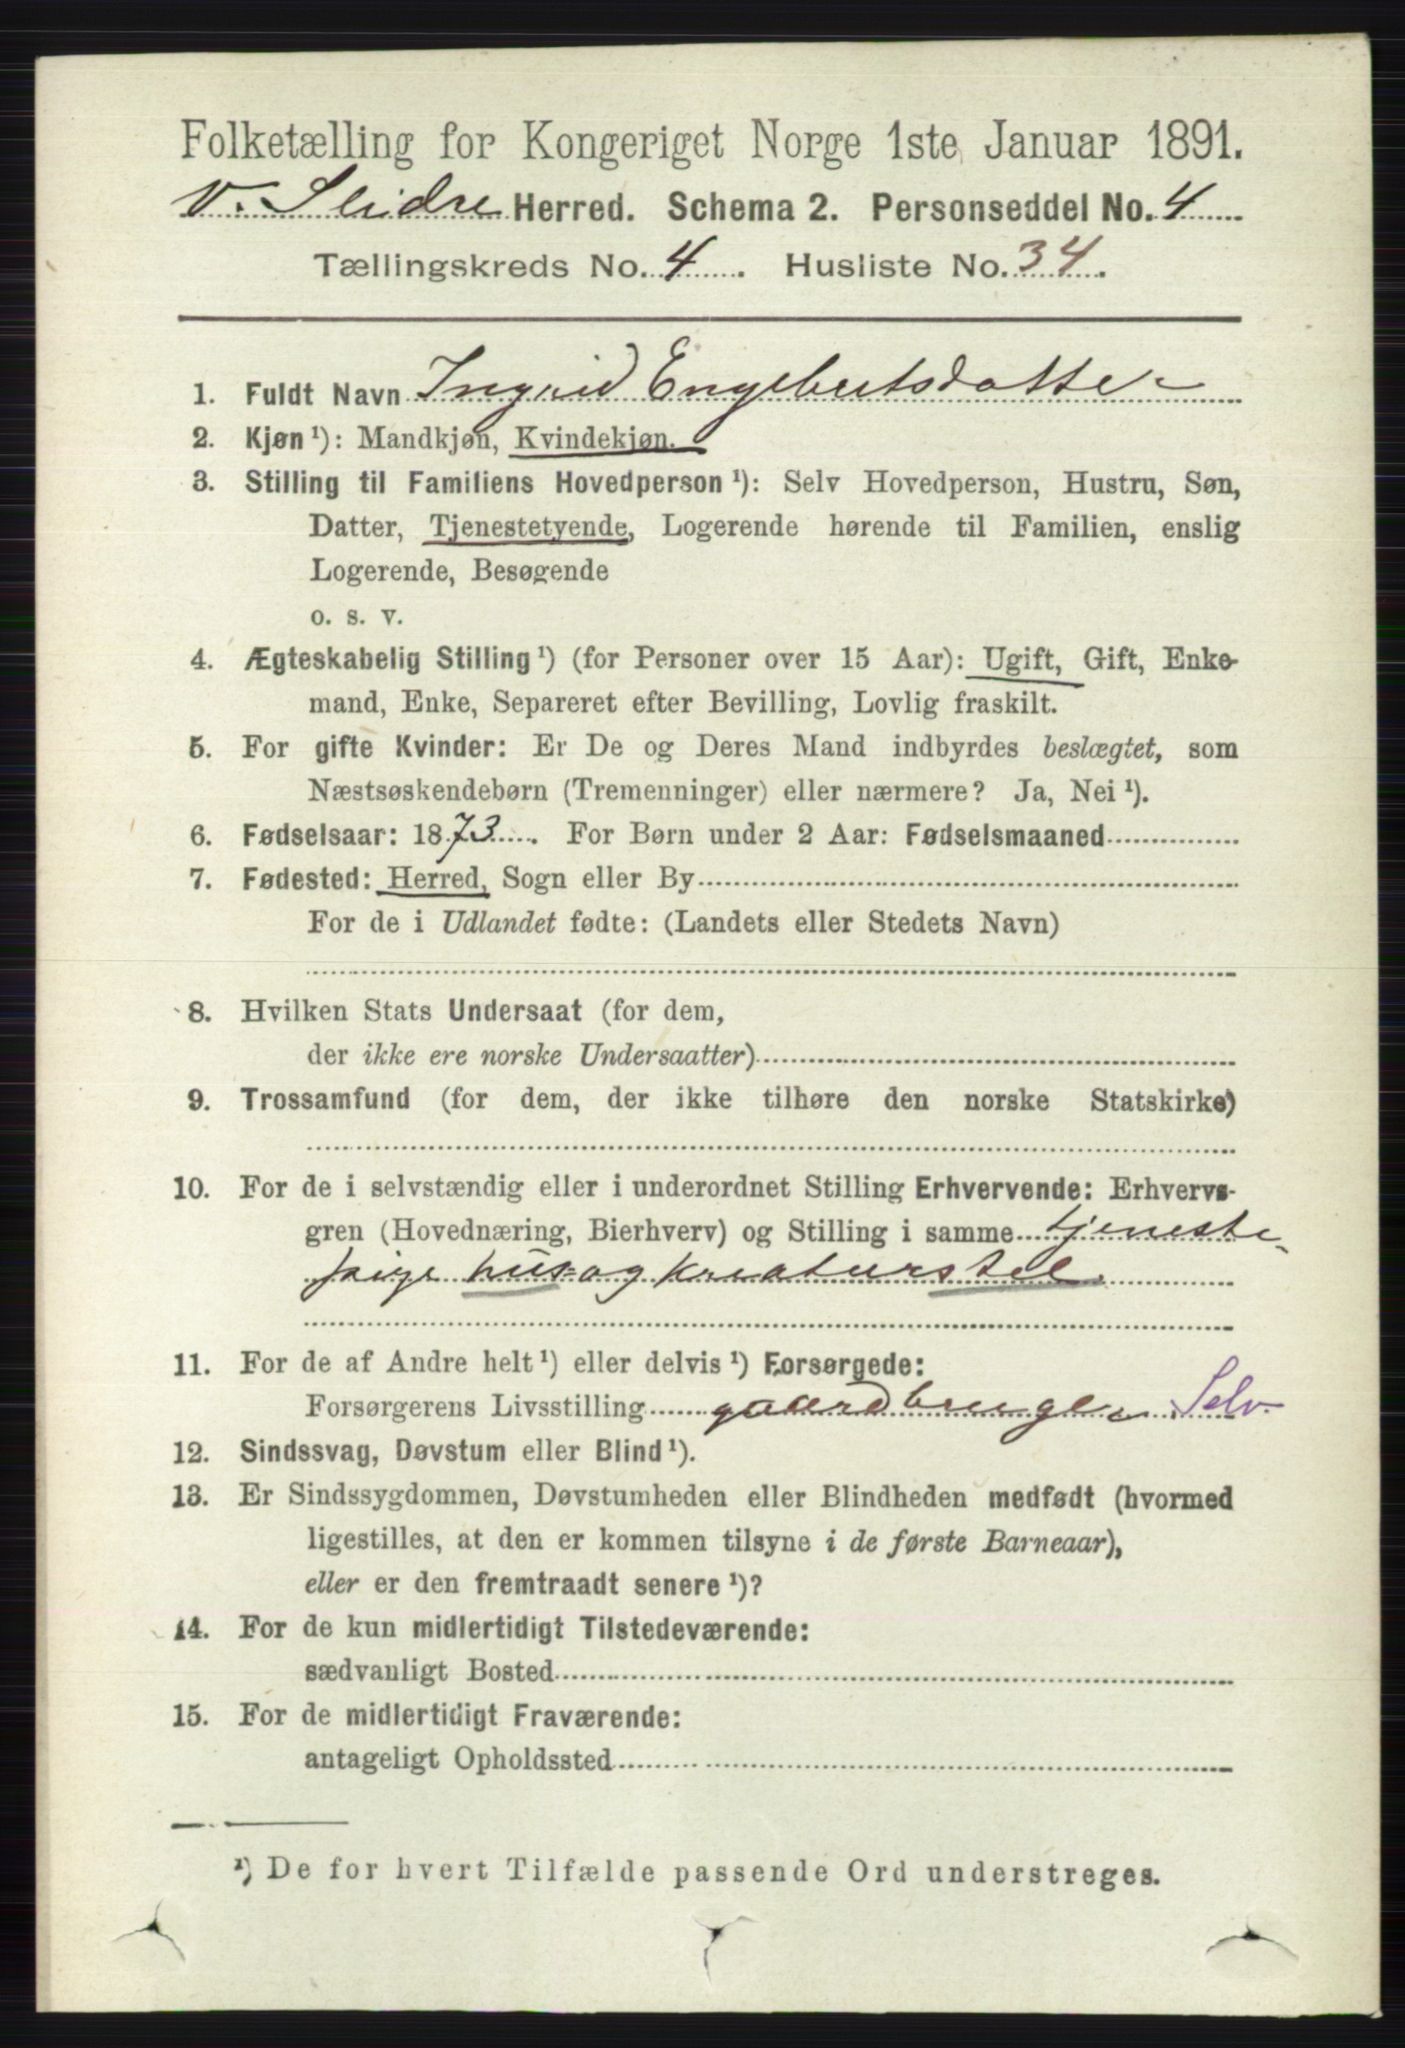 Folketælling for Kongeriget Norge 1ste Januar 1891.
V. Slidre Herred. Schema 2. Personseddel No. 4
Tællingskreds No. 4. Husliste No. 34.
1. Fuldt Navn Ingrid Engebertsdatter
2. Kjøn ¹): Mandkjøn, Kvindekjøn.
3. Stilling til Familiens Hovedperson ¹): Selv Hovedperson, Hustru, Søn,
Datter, Tjenestetyende, Logerende hørende til Familien, enslig
Logerende, Besøgende
o. s. v.
4. Ægteskabelig Stilling ¹) (for Personer over 15 Aar): Ugift, Gift, Enke-
mand, Enke, Separeret efter Bevilling, Lovlig fraskilt.
5. For gifte Kvinder: Er De og Deres Mand indbyrdes beslægtet, som
Næstsøskendebørn (Tremenninger) eller nærmere? Ja, Nei ¹).
6. Fødselsaar: 1873. For Børn under 2 Aar: Fødselsmaaned
7. Fødested: Herred, Sogn eller By
For de i Udlandet fødte: (Landets eller Stedets Navn)
8. Hvilken Stats Undersaat (for dem,
der ikke ere norske Undersaatter)
9. Trossamfund (for dem, der ikke tilhøre den norske Statskirke)
10. For de i selvstændig eller i underordnet Stilling Erhvervende: Erhvervs-
gren (Hovednæring, Bierhverv) og Stilling i samme tjeneste-
pige hus- og kreaturstel.
11. For de af Andre helt ¹) eller delvis ¹) Forsørgede:
Forsørgerens Livsstilling gaardbruger Selv.
12. Sindssvag, Døvstum eller Blind ¹).
13. Er Sindssygdommen, Døvstumheden eller Blindheden medfødt (hvormed
ligestilles, at den er kommen tilsyne i de første Barneaar),
eller er den fremtraadt senere ¹)?
14. For de kun midlertidigt Tilstedeværende:
sædvanligt Bosted
15. For de midlertidigt Fraværende:
antageligt Opholdssted
¹) De for hvert Tilfælde passende Ord understreges.